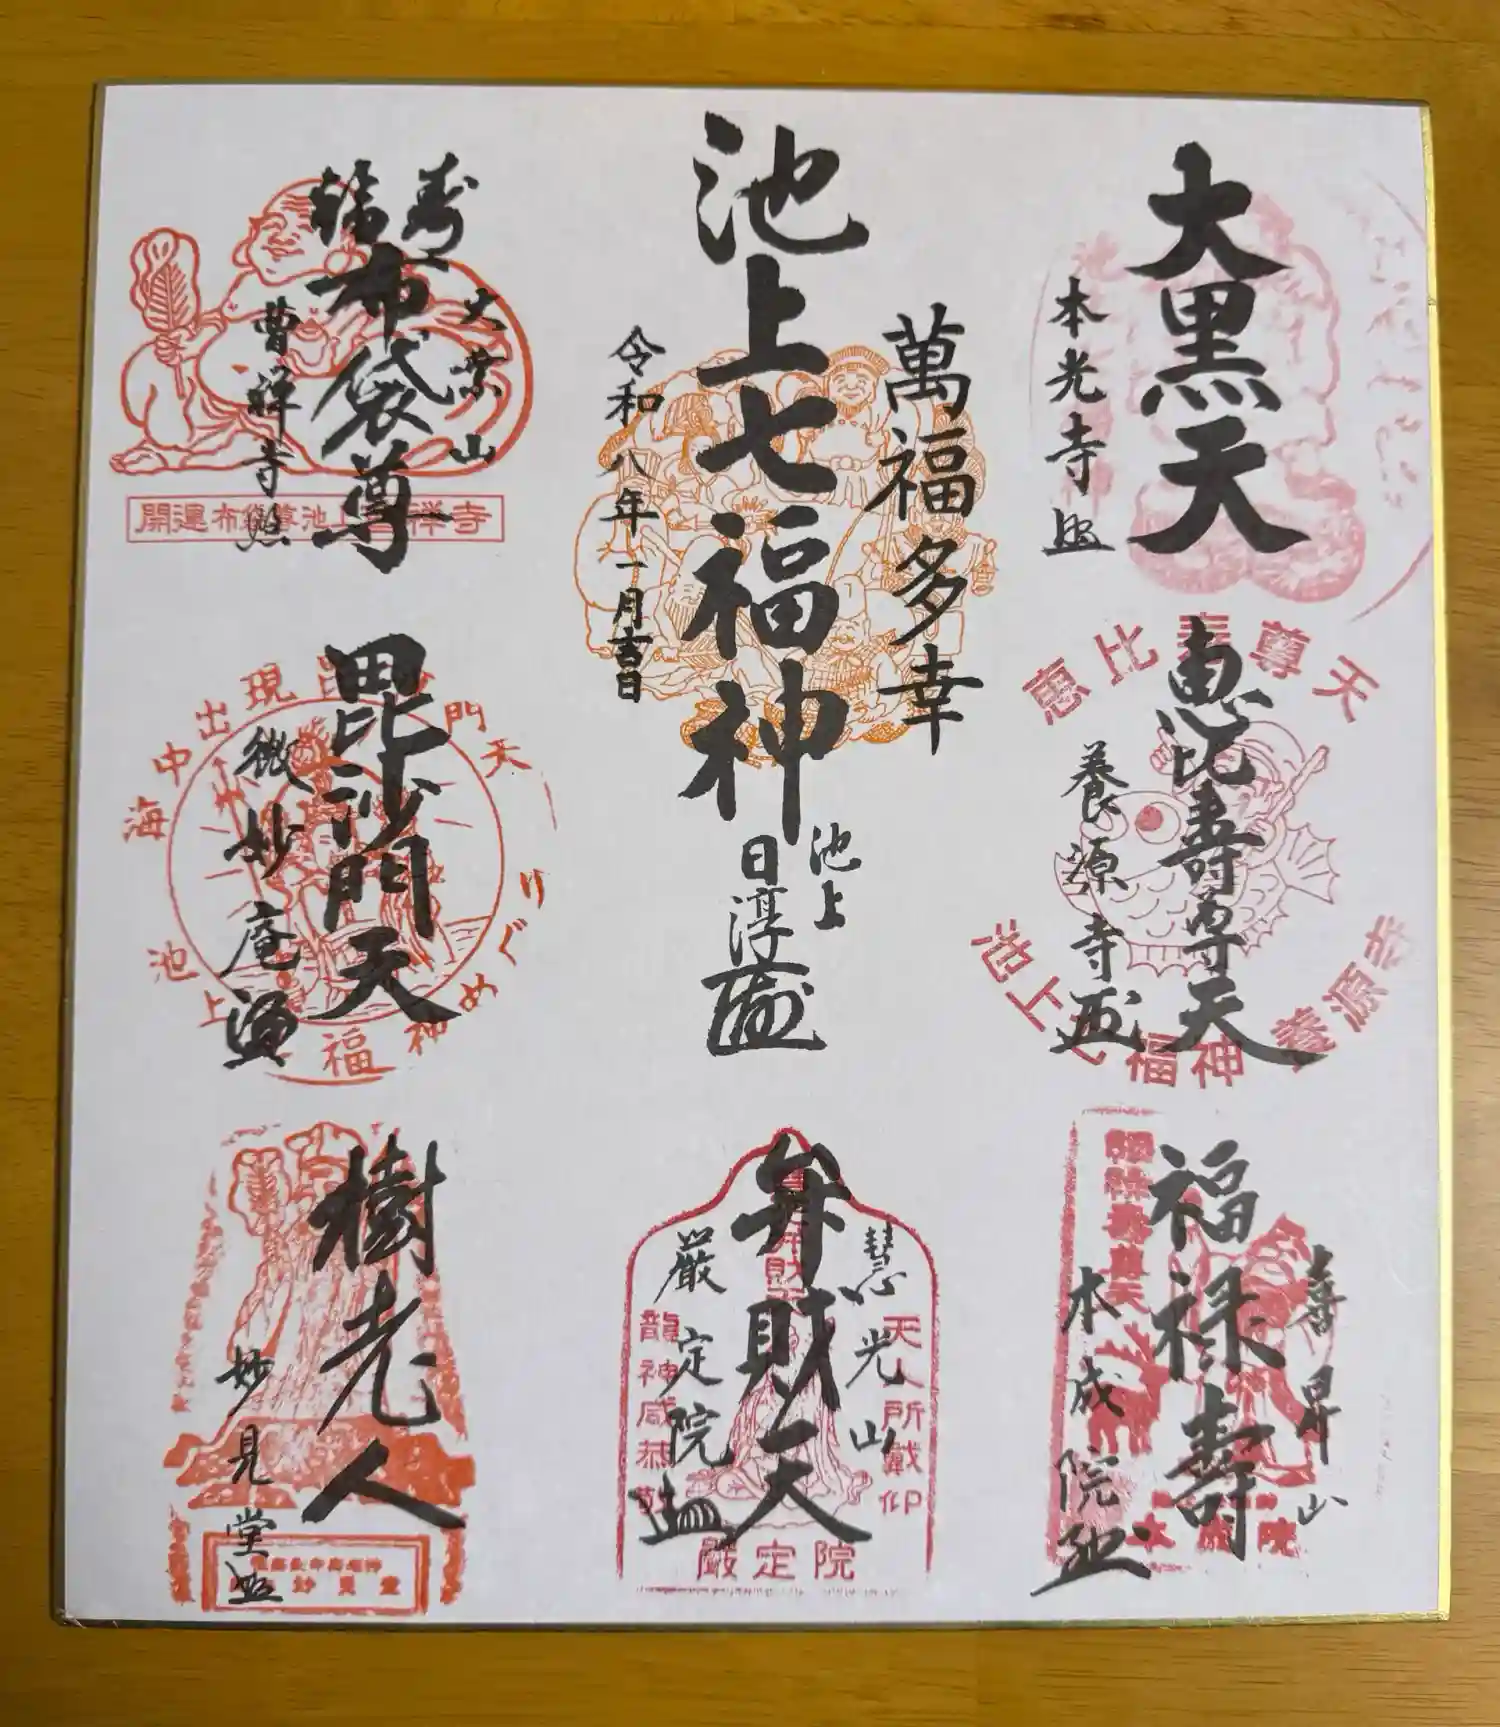 大黒天
本光寺
萬福多幸
池上七福神
令和八年一月吉日
池上
日淳
福寿
布袋尊
大業山
曹禅寺
開運布袋尊池上曹禅寺
恵比寿尊天
恵比寿尊天
養源寺
池上七福神 養源寺
海中出現毘沙門天
毘沙門天
微妙庵
池上七福神めぐり
福禄寿
喜昇山
本成院
福禄寿尊天
本成院
弁財天
慧光山
厳定院
天人所戴仰
龍神咸恭敬
厳定院
樹老人
妙見堂
妙見堂